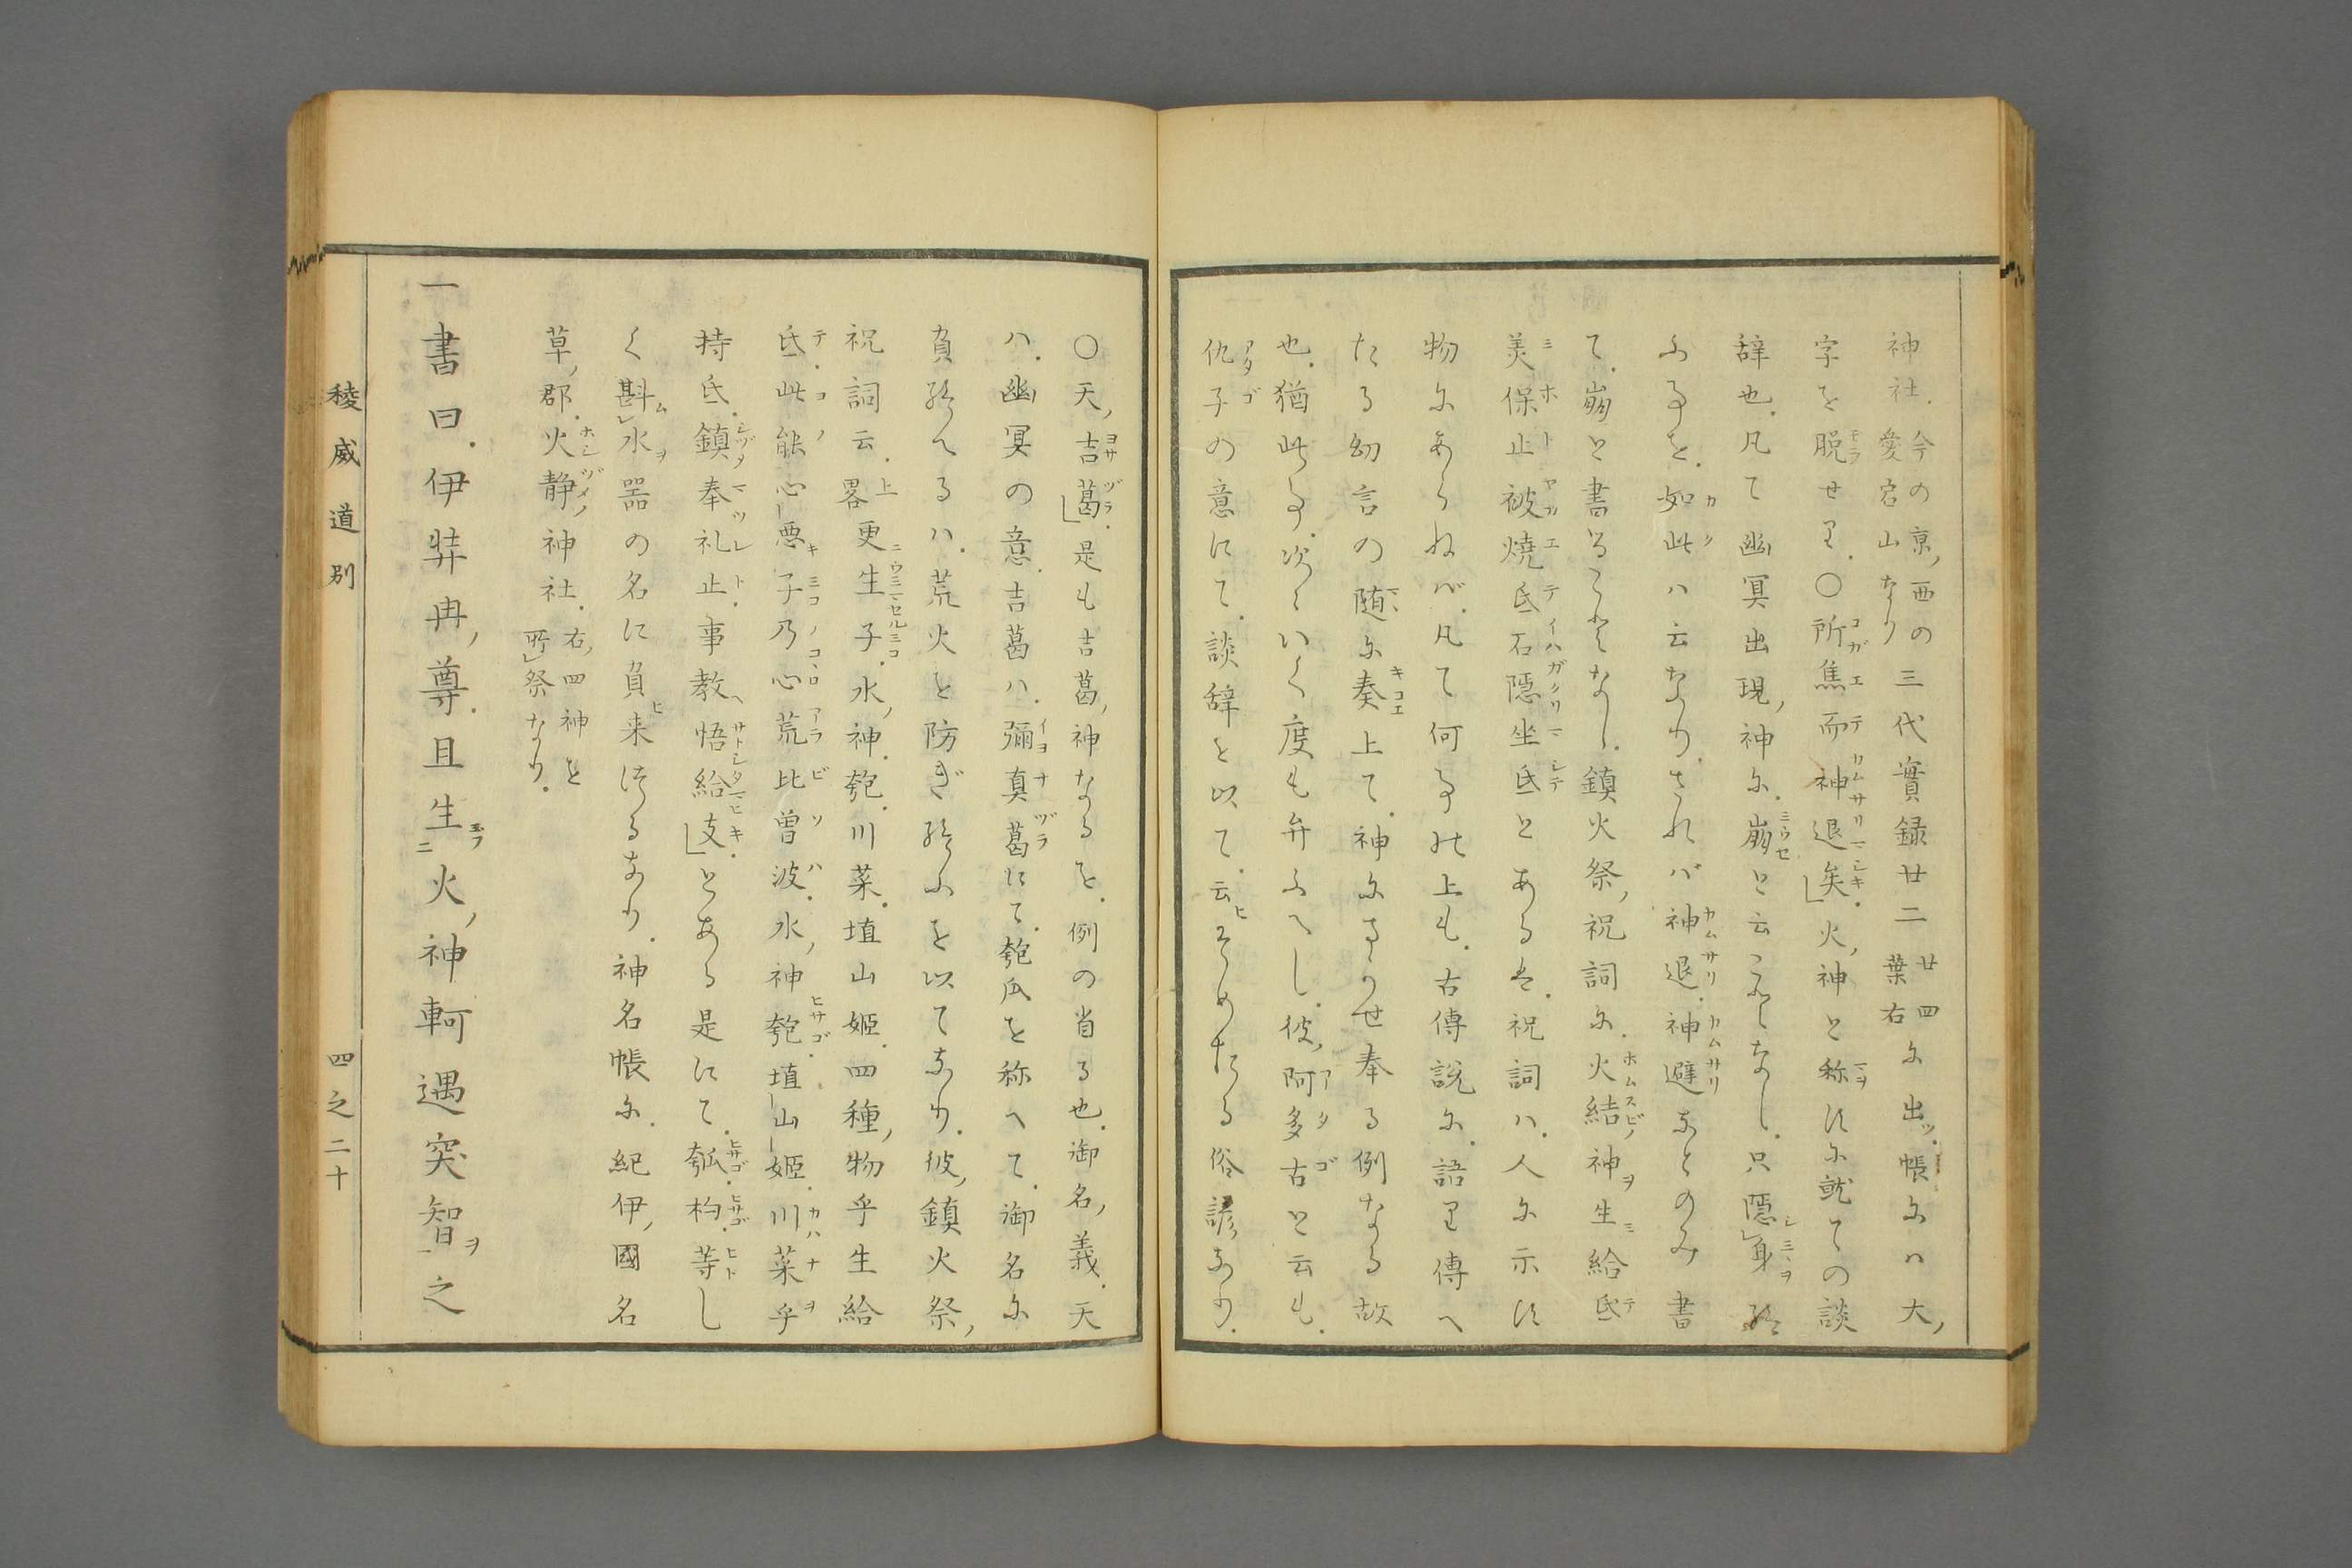 神社。今の京、西の愛宕山なり三代實録廿二廿四葉右尓出ッ。帳尓ハ大、
字を脱せり。〇所焦而神退矣。火、神と称に尓就ての談
辞也。凡て幽冥出現、神尓。崩と云ことなし。只隠身給
ふ事を。如此ハ云なり。されバ神退。神避などのみ書
て。崩と書ることなし。鎮火祭、祝詞尓。火結神生給氐
美保止被燒氐石隠坐氐とあるは。祝詞ハ。人尓示に
物尓あらねバ。凡て何事の上も。古傳説尓。語り傳へ
たる幼言の随尓奏上て。神尓きかせ奉る例なる故
也。猶此事。次々いく度も弁ふへし。彼、阿多古と云も。
仇子の意にて。談辞を以て。云そめたる俗諺なり。
〇天、吉葛。是も吉葛、神なるを。例の省る也。御名、義。天
ハ。幽冥の意。吉葛ハ。彌真葛にて。匏瓜を称へて。御名尓
負給へるハ。荒火を防ぎ給ふを以てなり。彼、鎮火祭、
祝詞云。上畧更生子。水、神。匏。川菜。埴山姫。四種、物乎生給
氐。此能心悪子乃心荒比曽波。水、神匏。埴山姫。川菜乎
持氐。鎮奉礼止。事教悟給支。とある是にて。瓠。杓。等し
く斟水器の名に負来つるなり。神名帳尓。紀伊、國名
草、郡。火静、神社。右、四神を所祭なり。
一書曰。伊弉冉、尊。且生火、神軻遇突智之
稜威道別
四之二十